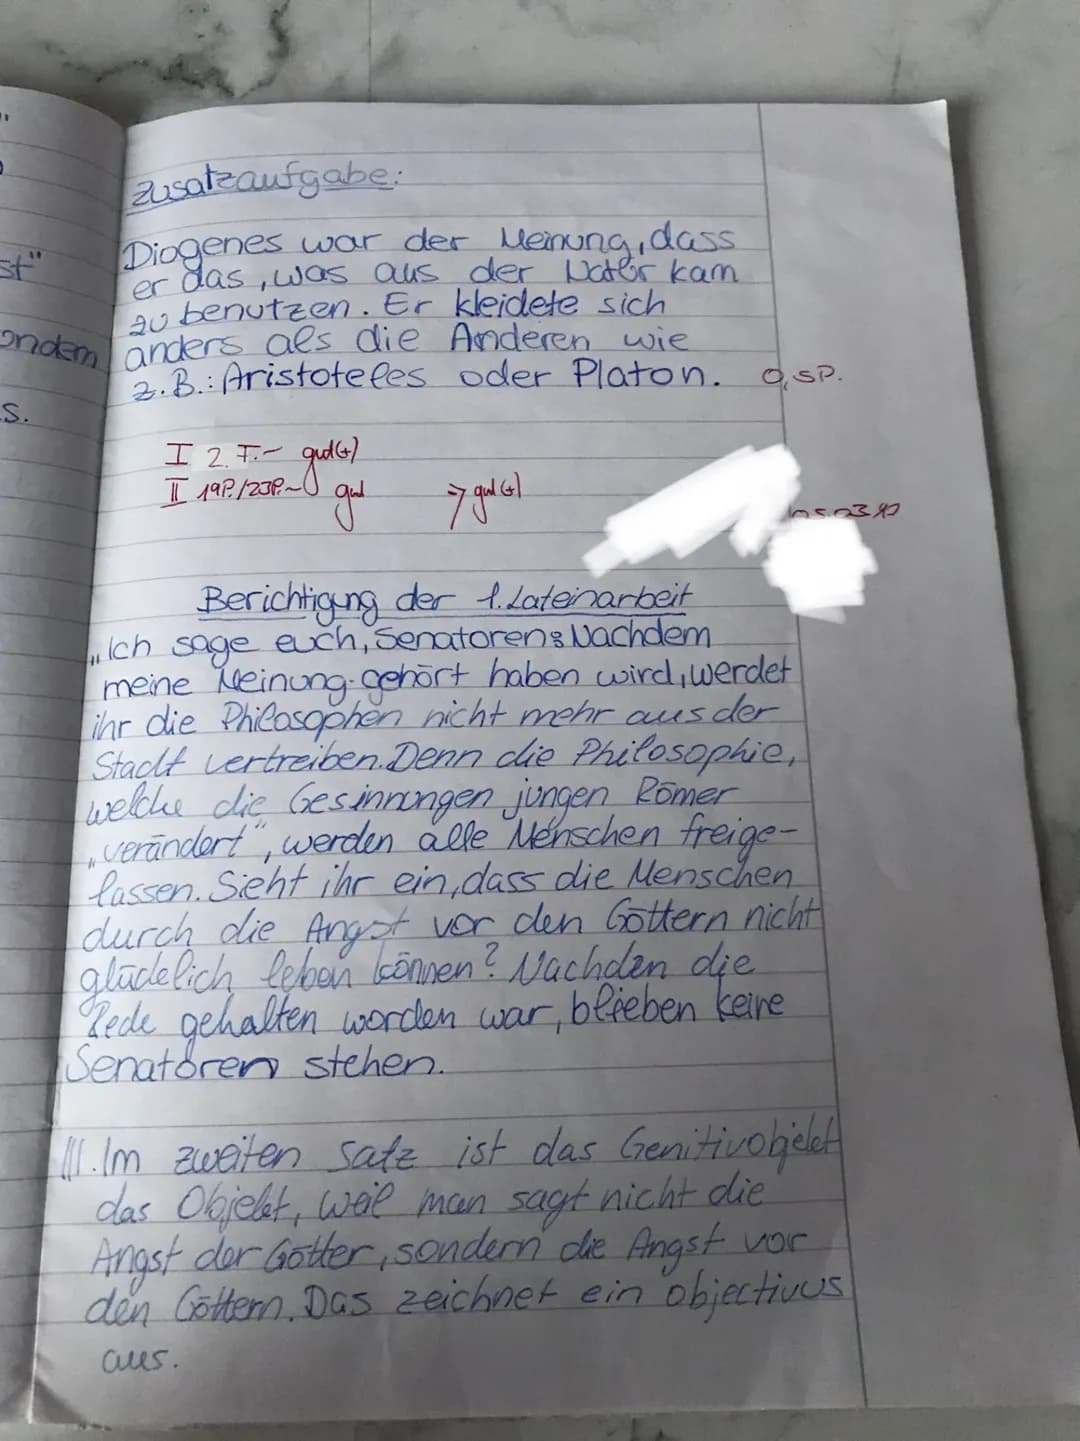 st"
ondern
s.
Zusatzaufgabe:
Diogenes war der Meinung, dass
er das, was aus der Natur kam
zu benutzen. Er kleidete sich
anders als die Anderen wie
z.B.: Aristoteles oder Platon. 0,5P.
I 2. F. ~ gut(+)
II 19P./23P. ~ gut => gut(+)
Berichtigung der 1. Lateinarbeit
„Ich sage euch, Senatoren: Nachdem
meine Meinung gehört haben wird, werdet
ihr die Philosophen nicht mehr aus der
Stadt vertreiben. Denn die Philosophie,
welche die Gesinnungen jungen Römer
„verändert", werden alle Menschen freige-
lassen. Sieht ihr ein, dass die Menschen
durch die Angst vor den Göttern nicht
glücklich leben können? Nachden die
Rede gehalten worden war, blieben keine
Senatoren stehen.
III. Im zweiten Satz ist das Genitivobjekt
das Objekt, weil man sagt nicht die
Angst der Götter, sondern die Angst vor
den Göttern. Das zeichnet ein objectivus
aus.